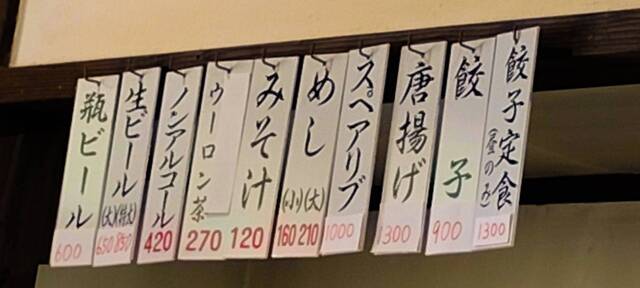 餃子定食(昼のみ) 1300
餃子 900
唐揚げ 1300
スペアリブ 1000
めし (小)(大) 160 210
みそ汁 120
ウーロン茶 270
ノンアルコール 420
生ビール (大)(特大) 650 850
瓶ビール 600